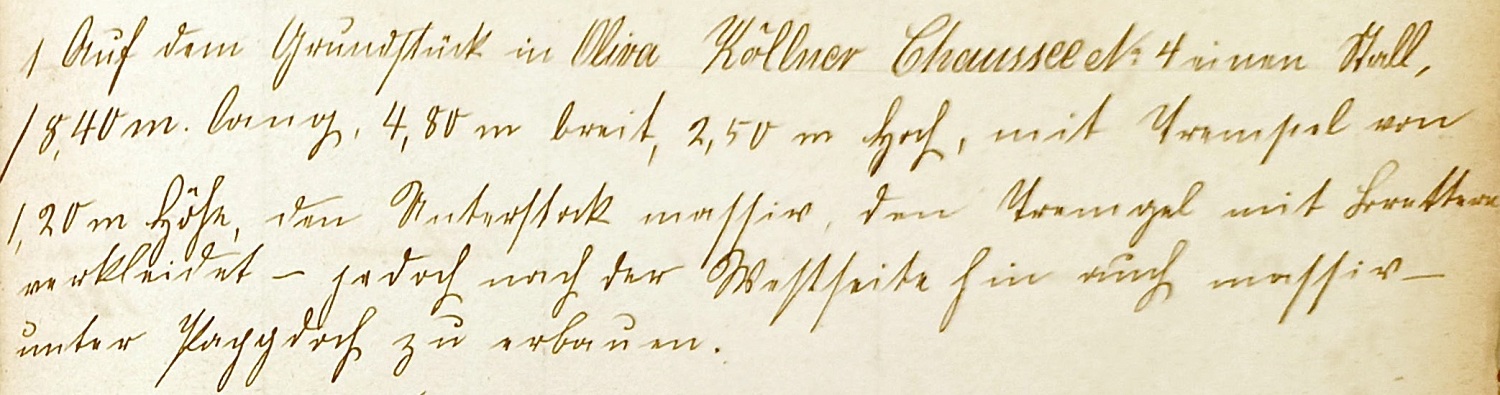 1 Auf dem Grundstück in Oliva Köllner Chaussee No 4 einen Stall,
18,40 m. lang, 4,80 m breit, 2,50 m hoch, mit Trempel von
1,20 m Höhe, den Unterstock massiv, den Trempel mit Brettern
verkleidet – jedoch nach der Westseite hin auch massiv –
unter Pappdach zu erbauen.